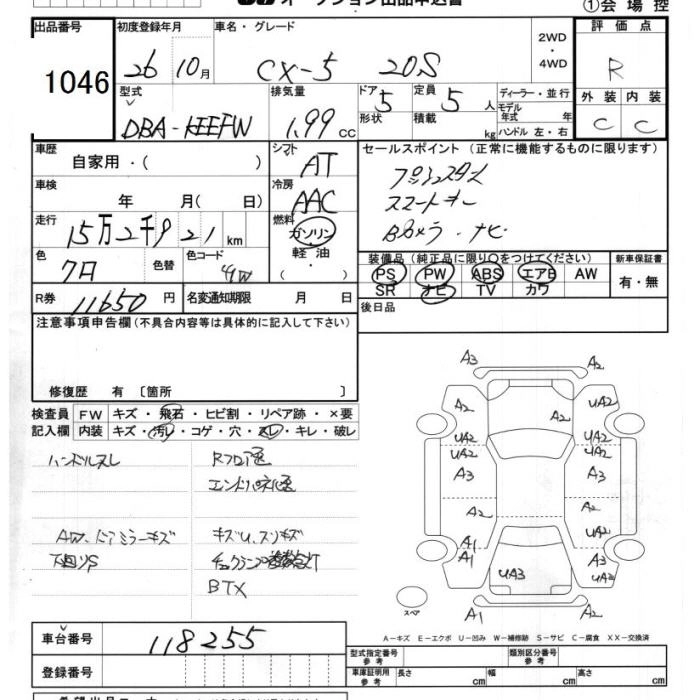 オークション出品申込書 ①会場控
出品番号 初度登録年月 車名・グレード 2WD・4WD 評価点
1046 26 10月 CX-5 20S R
型式 排気量 ドア 形状 定員 積載 ディーラー・並行 モデル年式 年 外装 内装
DBA-KEEFW 1.99 cc 5 5 人 kg ハンドル 左・右 C C
車歴 自家用・( ) シフト AT セールスポイント (正常に機能するものに限ります)
車検 年 月( 日) 冷房 AAC プッシュスタート
スマートキー
走行 15万2千921 km 燃料 ガソリン 軽油 ・( ) Bカメラ・ナビ
色 色替 色コード 装備品 (純正品に限り○をつけてください) 新車保証書
PS PW ABS エアB AW 有・無
SR ナビ TV カワ
R券 11650 円 名変通知期限 月 日 後日品
注意事項申告欄 (不具合内容等は具体的に記入して下さい)
修復歴 有 〔箇所 〕
検査員 FW キズ・飛石・ヒビ割・リペア跡・×要
記入欄 内装 キズ・汚レ・コゲ・穴・スレ・キレ・破レ
ハンドルスレ Rフロア歪
エンドパネル歪
AW、ドアミラーキズ キズU、スリキズ
下回りS
BTX
A3 A2
A2 A2 UA2
UA2 UA2 UA2
A3 UA2 A3
A2 A2
A1 A2 A1
A1 A3
UA3 UA2
スペア A1 A2
A-キズ E-エクボ U-凹み W-補修跡 S-サビ C-腐食 XX-交換済
車台番号 118255 型式指定番号 参考 類別区分番号 参考
登録番号 車庫証明用 参考 長さ cm 幅 cm 高さ cm